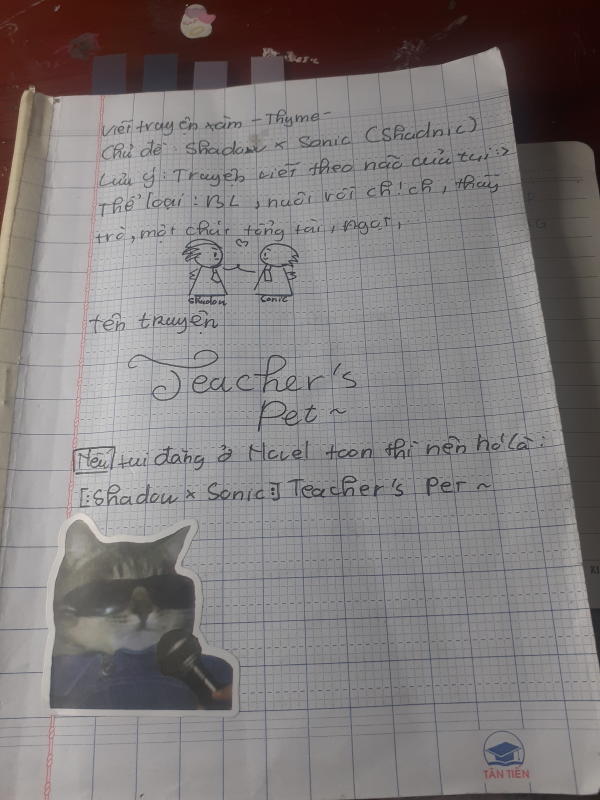 Viết truyện xàm -Thyme-
Chủ đề: Shadow x Sonic (Shadnic)
Lưu ý: Truyện viết theo não của tui :>
Thể loại: BL, nuôi rồi ch!ch, thầy
trò, một chút tổng tài, ngọt,
Shadow Sonic
tên truyện
Teacher's
Pet ~
Nếu tui đăng ở Novel toon thì nên nó là:
[:Shadow x Sonic:] Teacher's Pet ~
TÂN TIẾN